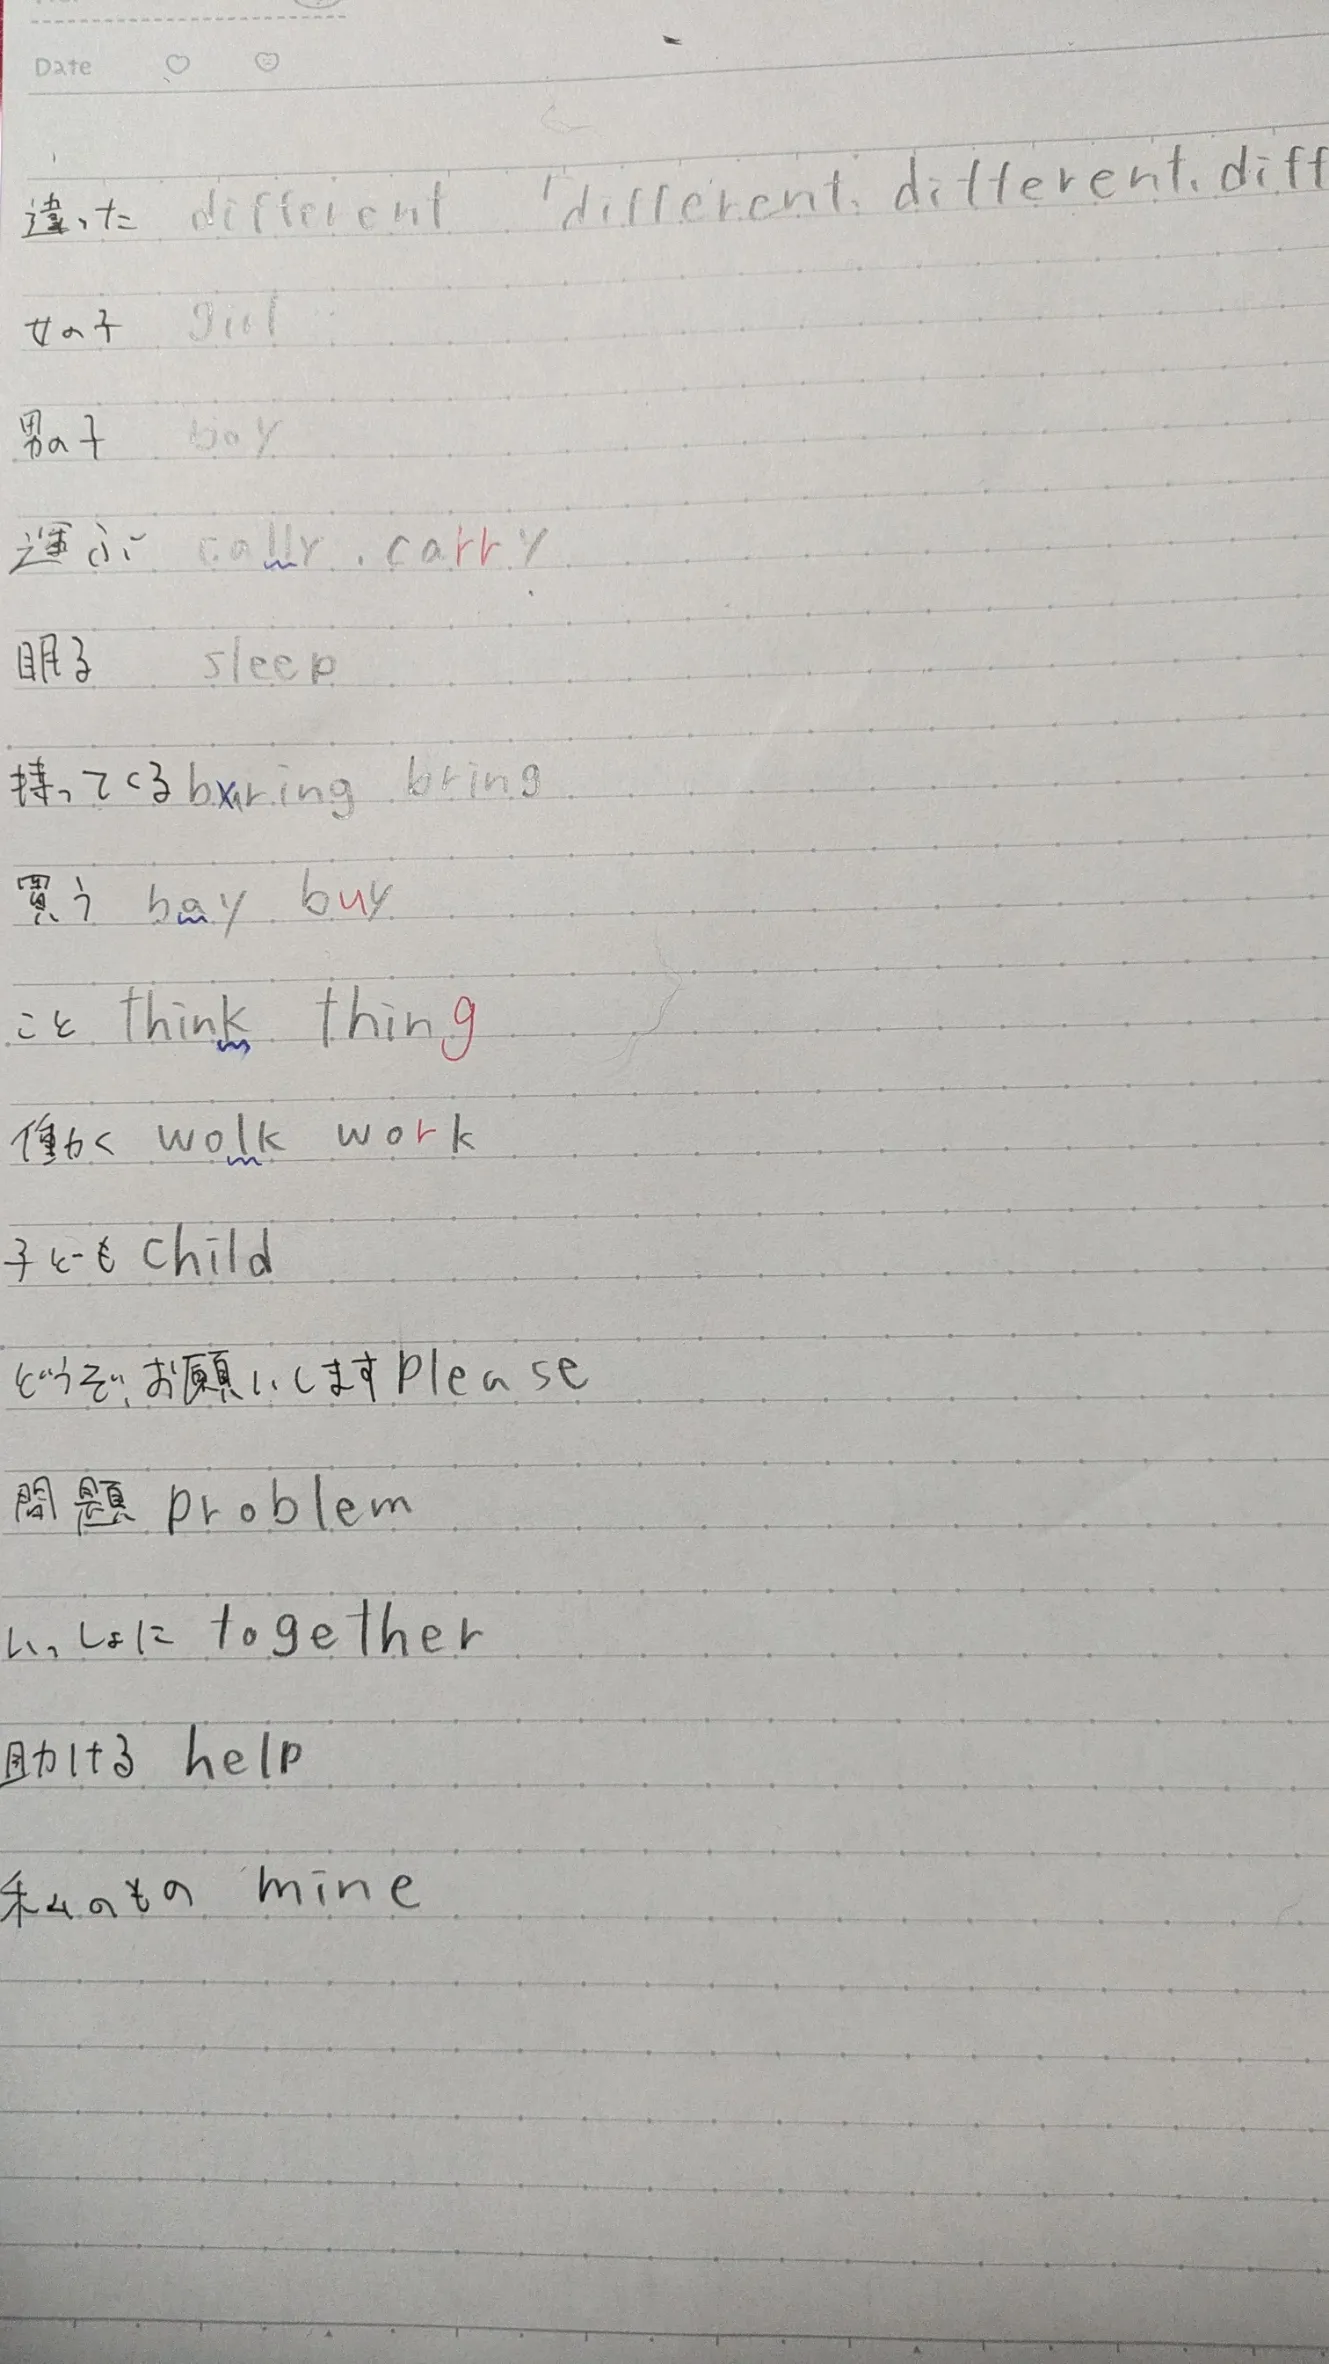 Date
違った different 「different. different. diff
女の子 girl
男の子 boy
運ぶ cally . carry
眠る sleep
持ってくる buring bring
買う bay buy
こと think thing
働く wolk work
子ども child
どうぞ、お願いします please
問題 problem
いっしょに together
助ける help
私のもの mine